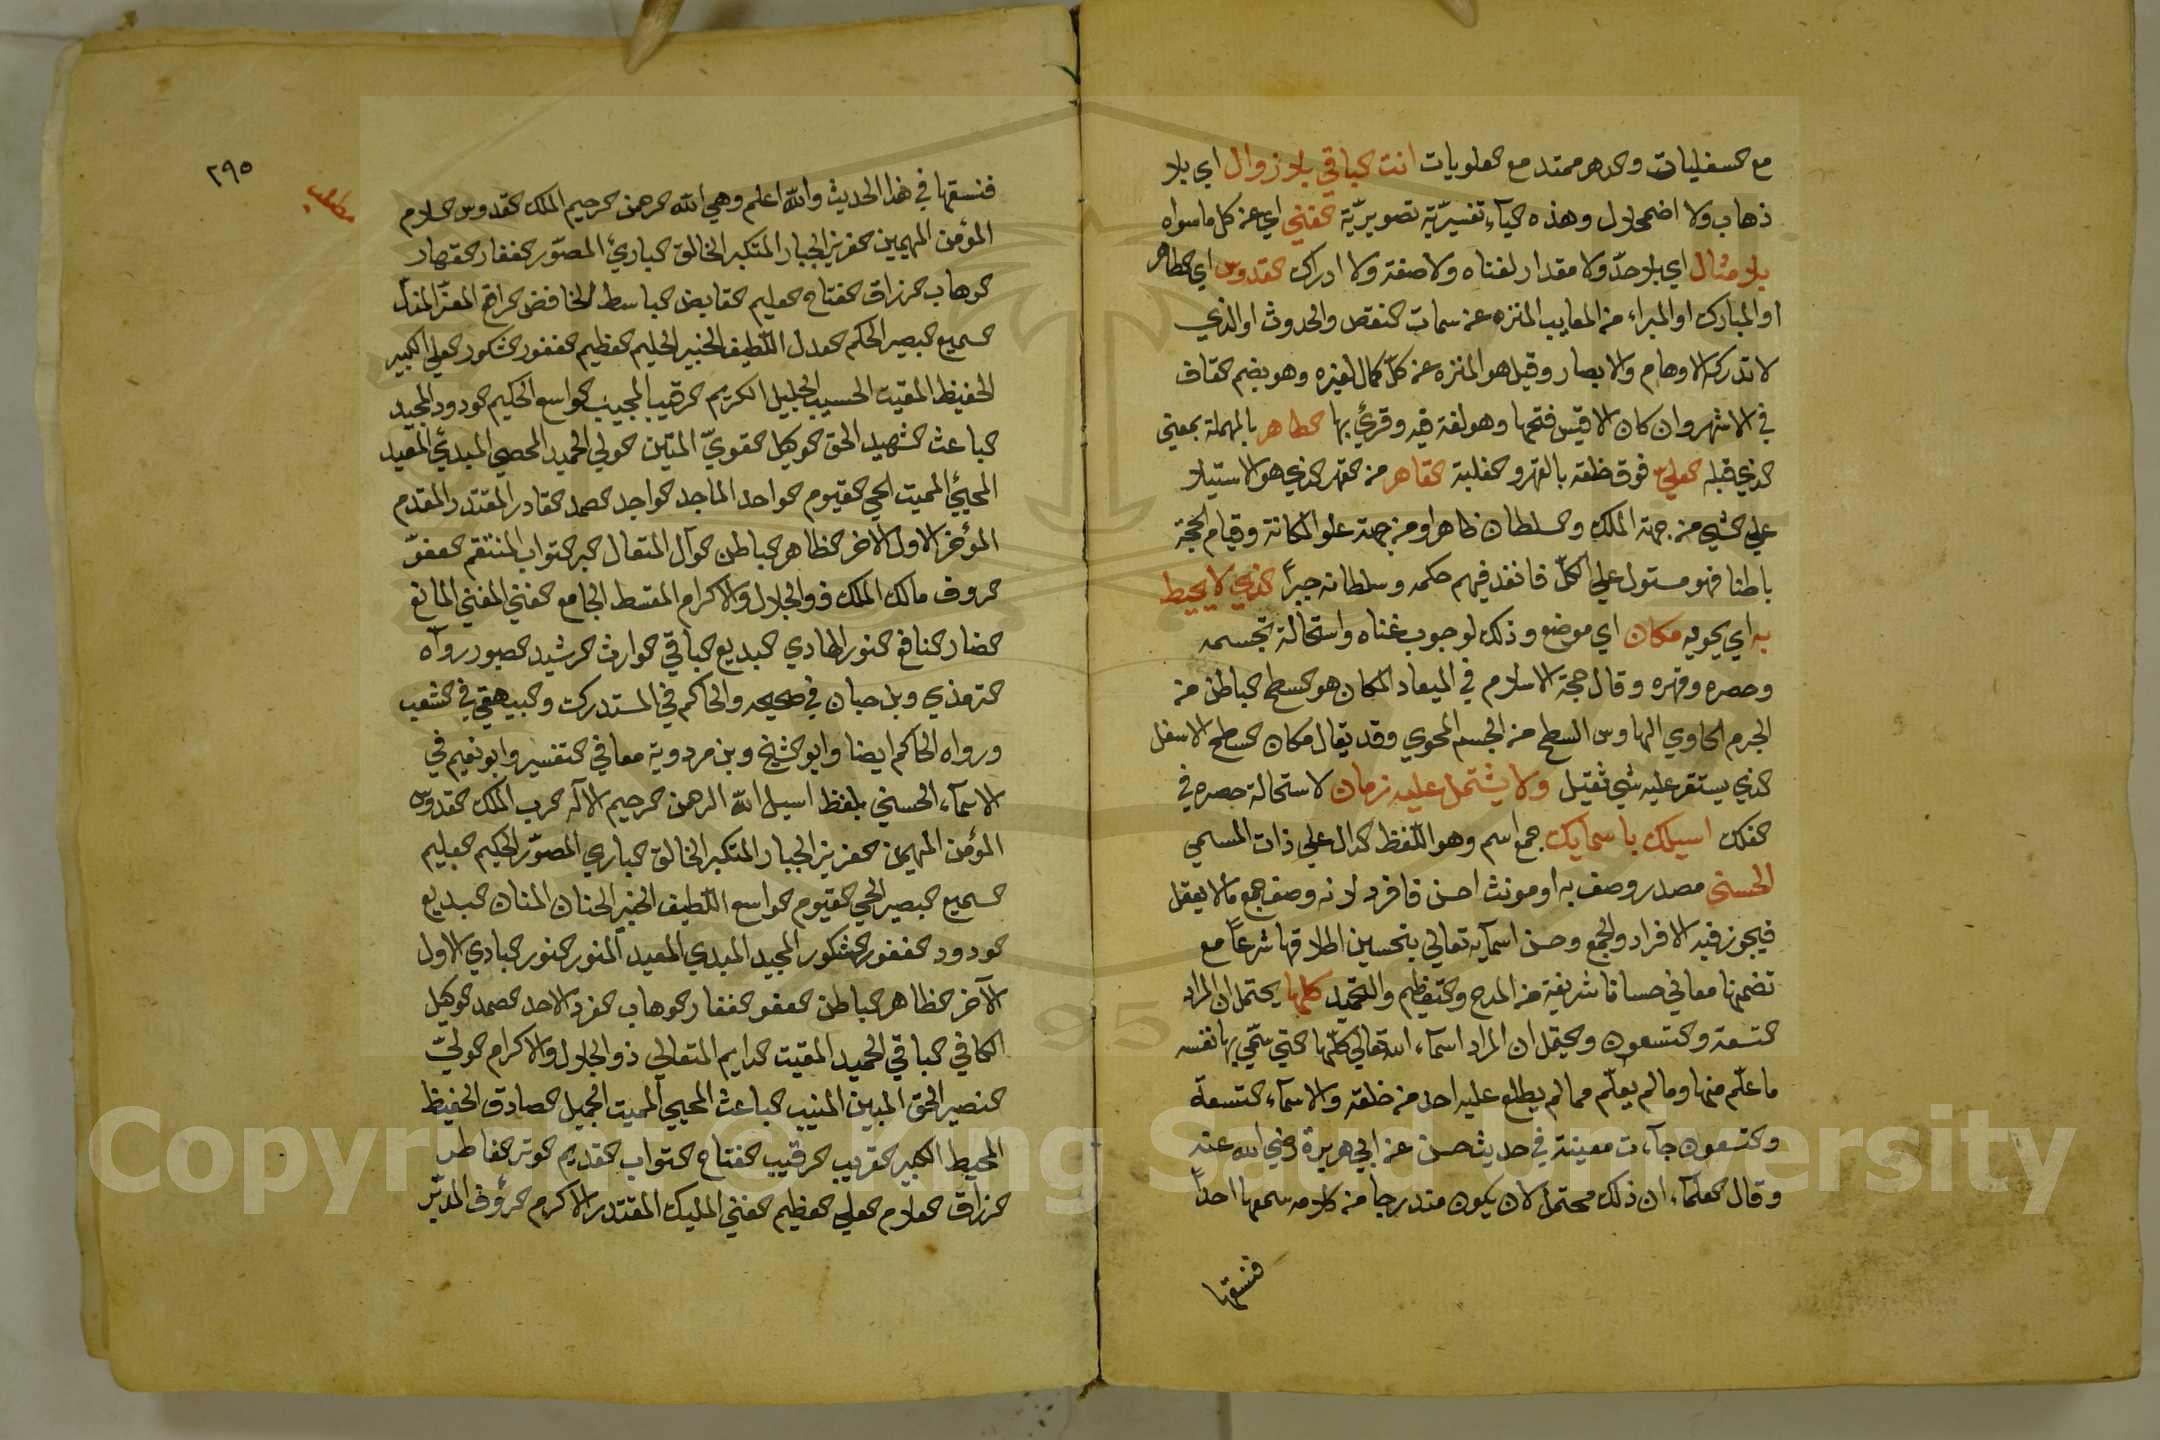 مع السفليات والدهر ممتد مع العلويات انت الباقي بلا زوال اي بلا
ذهاب ولا اضمحلال وهذه اليآء تفسيريّة تصويريّة الغني اي عن كل ما سواه
بلا مثال اي بلا حدّ ولا مقدار لغناه ولا صفة ولا ادراك القدوس اي الطاهر
او المبارك او المبراء من المعايب المنزه عن سمات النقص والحدوث او الذي
لا تدركه الاوهام والابصار وقيل هو المنزه عن كلّ كمال لغيره وهو بضم القاف
في الاشهر وان كان الاقيس فتحها وهو لغة فيه وقرئ بها الطاهر بالمهملة بمعني
الذي قبله العليّ فوق خلقه بالقهر والغلبة القاهر من القهر الذي هو الاستيلا
علي الشي من جهة الملك والسلطان ظاهرا ومن جهة علو المكانة وقيام الحجة
باطنا فهو مستول علي الكلّ نافذ فيهم حكمه وسلطانه جبراً الذي لا يحيط
به اي يحويه مكان اي موضع وذلك لوجوب غناه واستحالة تجسمه
وحصره وقهره وقال حجة الاسلام في الميعاد المكان هو السطح الباطن من
الجرم الحاوي المهاوس السطح من الجسم المحوي وقد يقال مكان السطح الاسفل
الذي يستقر عليه شي ثقيل ولا يشتمل عليه زمان لاستحالة حصره في
الفلك اسيلك باسمايك جمع اسم وهو اللّفظ الدال علي ذات المسمي
الحسني مصدر وصف به او مونث احسن فافرد لانه وصف جمع مالا يعقل
فيجوز فيه الافراد والجمع وحسن اسمآيه تعالي بتحسين اطلاقها شرعاً مع
تضمنها معاني حسانا شريفة من المدح والتعظيم والتمجيد كلها يحتمل ان المراد
التسعة والتسعون ويحتمل ان المراد اسمآء الله تعالي كلّها التي سمّي بها نفسه
ما علم منها وما لم يعلّم مما لم يطلع عليه احد من خلقه والاسمآء التسعة
والتسعون جآءت معينة في حديث حسن عن ابي هريرة رضي الله عنه
وقال العلمآء ان ذلك محتمل لان يكون متدرجا من كلامه سمعها احداً
فنسقها
٢٩٥
فنسقها في هذا الحديث والله اعلم وهي الله الرحمن الرحيم الملك القدوس السلام
المؤمن المهيمن العزيز الجبار المتكبر الخالق الباريء المصوّر الغفار القهار
الوهاب الرزاق الفتاح العليم القابض الباسط الخافض الرافع المعزّ المذلّ
السميع البصير الحكم العدل اللّطيف الخبير الحليم العظيم الغفور الشكور العلي الكبير
الحفيظ المقيت الحسيب الجليل الكريم الرقيب المجيب الواسع الحكيم الودود المجيد
الباعث الشهيد الحق الوكيل القويّ المتين الولي الحميد المحصي المبدئ المعيد
المحيي المميت الحي القيوم الواحد الماجد الواجد الصمد القادر المقتدر المقدم
المؤخر الاول الاخر الظاهر الباطن الوآل المتعال البر التواب المنتقم العفوّ
الروف مالك الملك ذو الجلال والاكرام المقسط الجامع الغني المغني المانع
الضار النافع النور الهادي البديع الباقي الوارث الرشيد الصبور رواه
الترمذي وبن حبان في صحيحه والحاكم في المستدرك والبيهقي في الشعب
ورواه الحاكم ايضا وابو الشيخ وبن مردوية معا في التفسير وابو نعيم في
الاسمآء الحسني بلفظ اسيل الله الرحمن الرحيم الاله الرب الملك القدوس
المؤمن المهيمن العزيز الجبار المتكبر الخالق الباري المصوّر الحكيم العليم
السميع البصير الحي القيوم الواسع اللّطيف الخبير الحنان المنان البديع
الودود الغفور الشكور المجيد المبدي المعيد المنور النور البادي الاول
الآخر الظاهر الباطن العفو الغفار الوهاب الفرد الاحد الصمد الوكيل
الكافي الباقي الحميد المقيت الدايم المتعالي ذو الجلال والاكرام الوليّ
النصير الحق المبين المنيب الباعث المحيي المميت الجميل الصادق الحفيظ
المحيط الكبير القريب الرقيب الفتاح التواب القديم الوتر الفاطر
الرزاق العلام العلي العظيم الغني المليك المقتدر الاكرم الرؤف المدبّر